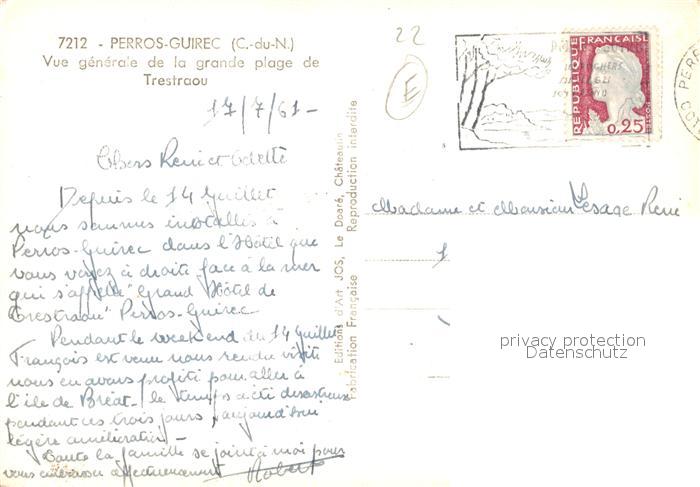 7212 - PERROS-GUIREC (C.-du-N.)
Vue générale de la grande plage de
Trestraou
17/7/61-
Chers René et Odette
Depuis le 14 Juillet
nous sommes installés à
Perros-Guirec dans l'Hôtel que
vous voyez à droite face à la mer
qui s'appelle "Grand Hôtel de
Trestraou" Perros-Guirec
Pendant le week end du 14 Juillet
François est venu nous rendre visite
nous en avons profité pour aller à
l'île de Bréat. le temps a été désastreux
pendant ces trois jours, aujourd'hui
légère amélioration -
Toute la famille se joint à moi pour
vous embrasser affectueusement
Robert
Editions d'Art JOS, Le Doaré, Châteaulin
Fabrication Française Reproduction interdite
22
E
REPUBLIQUE FRANÇAISE
0,25
PERR
Madame et Monsieur Lesage René
privacy protection
Datenschutz